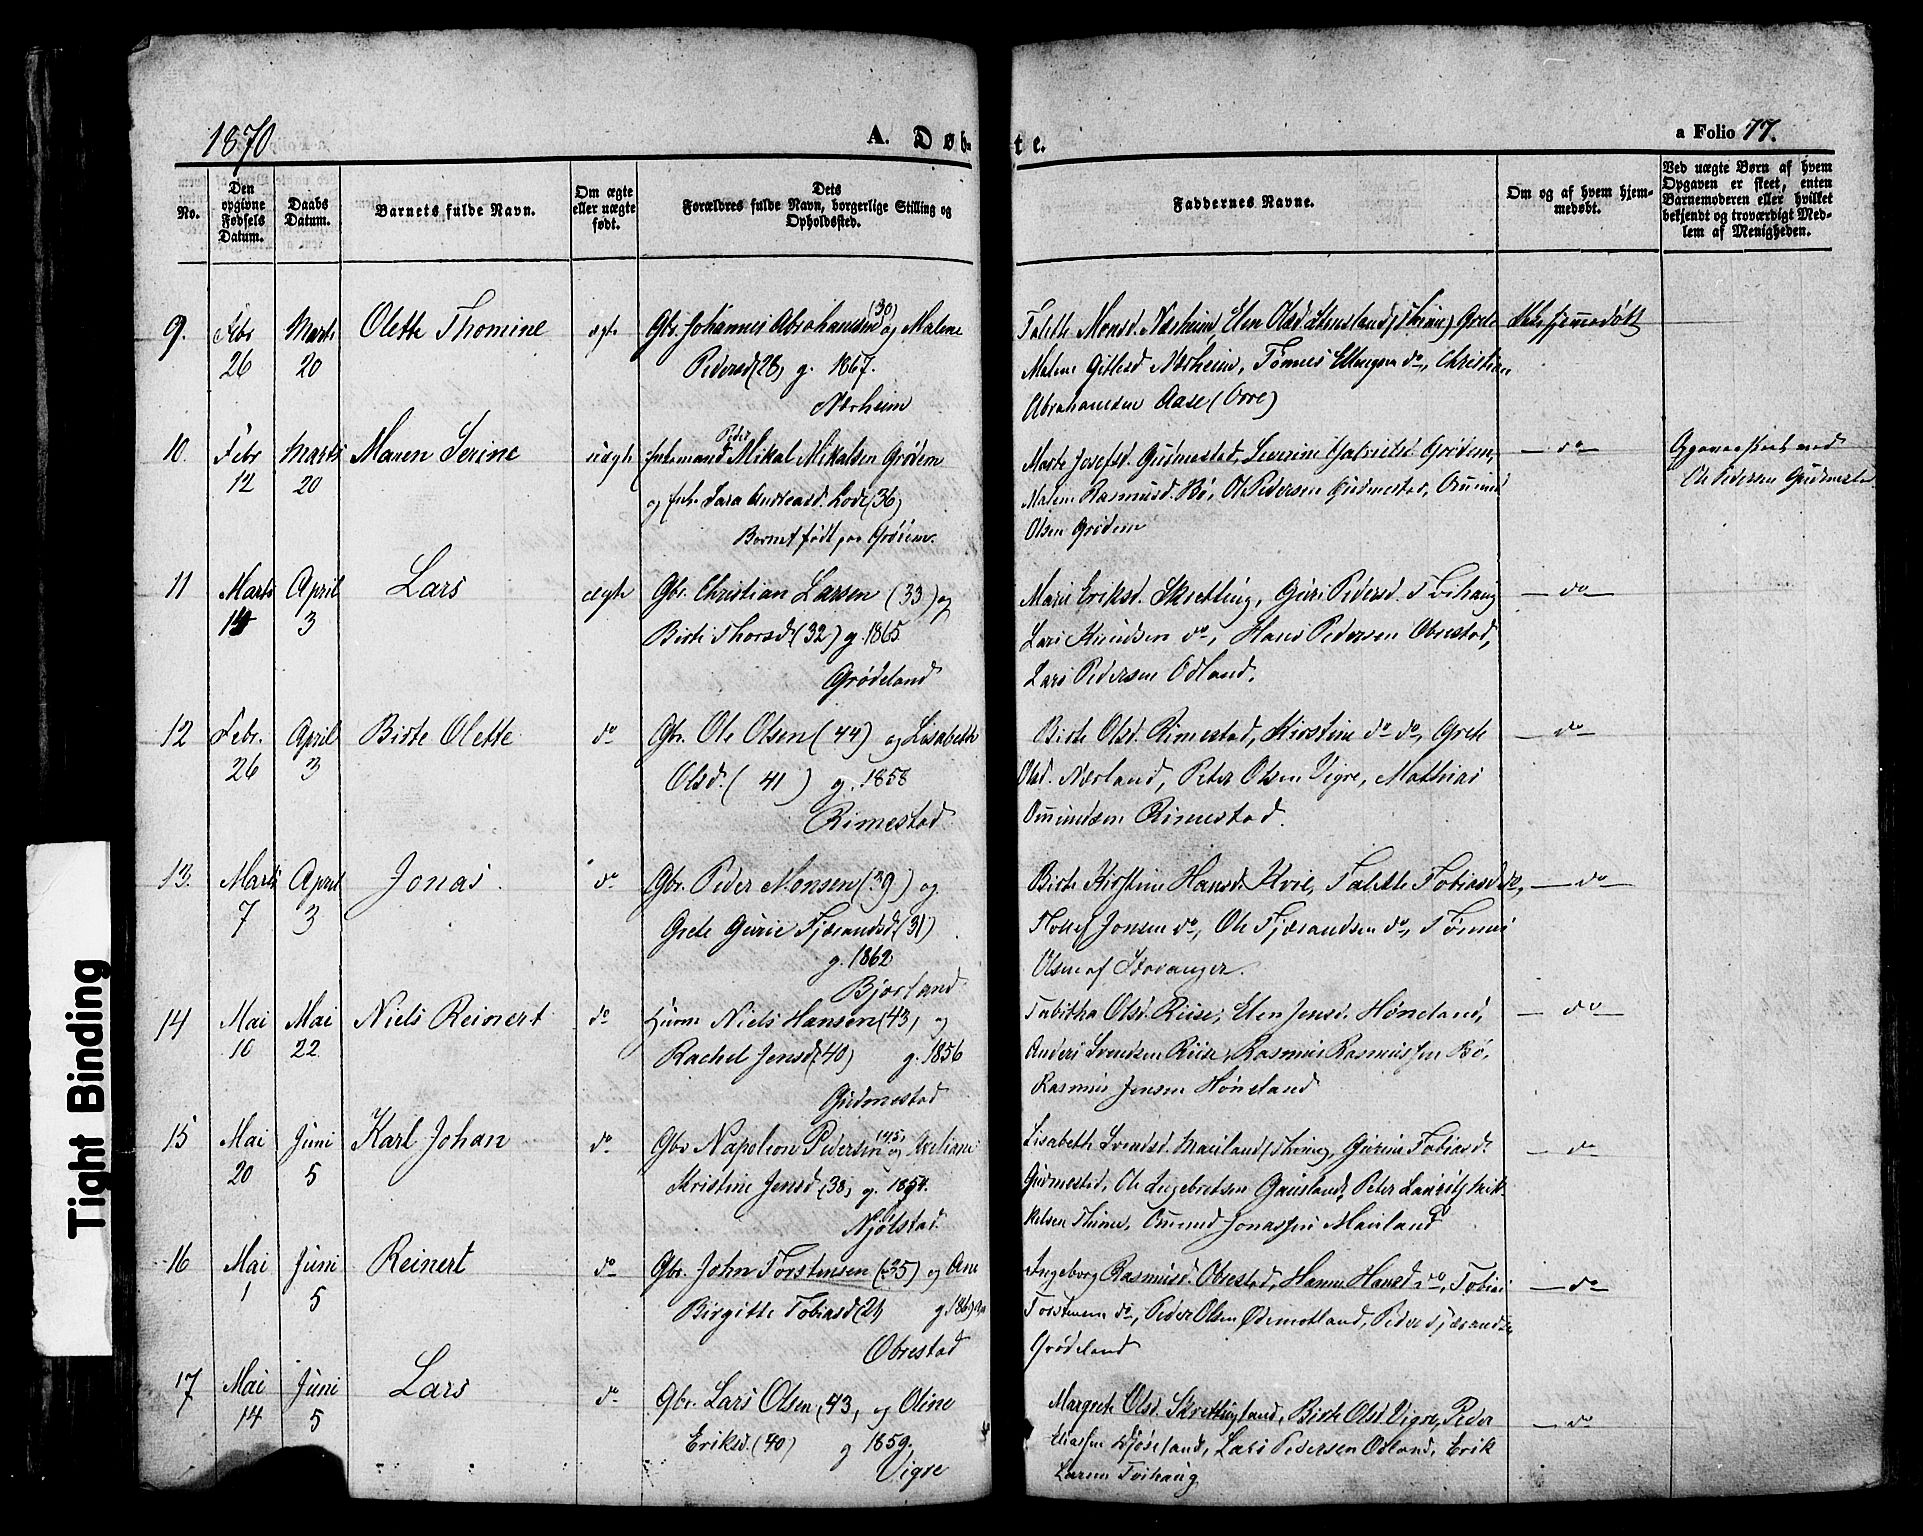 1870
A. Døb-
te.
a Folio 77.
No.
Den opgivne Fødsels Datum.
Daabs Datum.
Barnets fulde Navn.
Om ægte eller uægte født.
Dets Forældres fulde Navn, borgerlige Stilling og Opholdssted.
Faddernes Navne.
Om og af hvem hjem-
medøbt.
Ved uægte Børn af hvem
Opgaven er skeet, enten
Barnemoderen eller hvilket
bekjendt og troværdigt Med-
lem af Menigheden.
9. Febr 26 Marts 20 Olette Thomine ægte Gbr. Johannes Abrahamsen (30) og Malene
Pedersd (28) g. 1867.
Nærheim
Talette Monsd. Nærheim, Elen Olsd. (Thime) Grete
Malene Nærheim, Tønnes do, Christian
Abrahamsen Aase (Orre)
hjemmedøbt
10. Febr 12 Marts 20 Maren Serine uægte Peder Mikal Mikalsen Grødem
og Sara Andreasd. Lode (36)
Barnet født paa Grødem.
Marte Josefsd. Gudmestad, Severine Gabrielsd. Grødem,
Malene Rasmusd. Bø, Ol Pedersen Gudmestad, Omund
Olsen Grødem
do
Ole Pedersen Gudmestad
11 Marts 14 April 3 Lars ægte Gbr. Christian Larsen (33) og
Birte Thorsd (32) g. 1865.
Grødeland
Mari Eriksd. Skretting, Guri Pedersd. Tvihaug
Lars Knudsen do, Hans Pedersen Obrestad,
Lars Pedersen Odland.
do
12 Febr. 26 April 3 Birte Olette do Gbr. Ole Olsen (44) og Lisabeth
Olsd. (41) g. 1858
Rimestad
Birte Olsd. Rimestad, Kirstine do do, Grete
Olsd. Nærland, Peter Olsen Vigre, Mathias
Omundsen Rimestad.
do
13. Marts 7 April 3 Jonas. do Gbr. Peder Monsen (39) og
Grete Gurie Fjærandsd (31)
g. 1862
Bjorland
Birte Kirstine Hansd. Hvil, Talette Tobiasd do,
Jonsen do, Ole Fjærandsen do, Tønnes
Olsen af Stavanger.
do
14 Mai 10 Mai 22 Niels Reinert do Huusm Niels Hansen (43) og
Rachel Jensd (40) g. 1856
Gudmestad
Tabitha Olsd. Riise, Elen Jensd. Høneland,
Anders Svendsen Riise, Rasmus Rasmussen Bø,
Rasmus Jensen Høneland
do
15 Mai 20 Juni 5 Karl Johan do Gbr Napoleon Pedersen (45) og
Kristine Jensd (38) g. 1854.
Njølstad.
Lisabeth Svendsd. Mauland (Thime), Gurine Tobiasd.
Gudmestad, Ole Ingebretsen Gausland, Peter Lauritz Mik-
kelsen Thime, Omund Jonassen Mauland
do
16 Mai 1 Juni 5 Reinert do Gbr. John Torstensen (25) og Ane
Birgitte Tobiasd (21)
Obrestad
Ingeborg Rasmusd. Obrestad, Hanne Hansd do, Tobias
Torstensen do, Peder Olsen Ødemotland, Peder Fjærandsen
Grødeland
do
17 Mai 14 Juni 5 Lars do Gbr. Lars Olsen (43) og Oline
Eriksd. (40) g 1859.
Vigre
Margrete Olsd. Skrettingland, Birte Olsd Vigre, Peder
Eliassen Lars Pedersen Odland, Erik
Larsen Tvihaug
do
Tight Binding